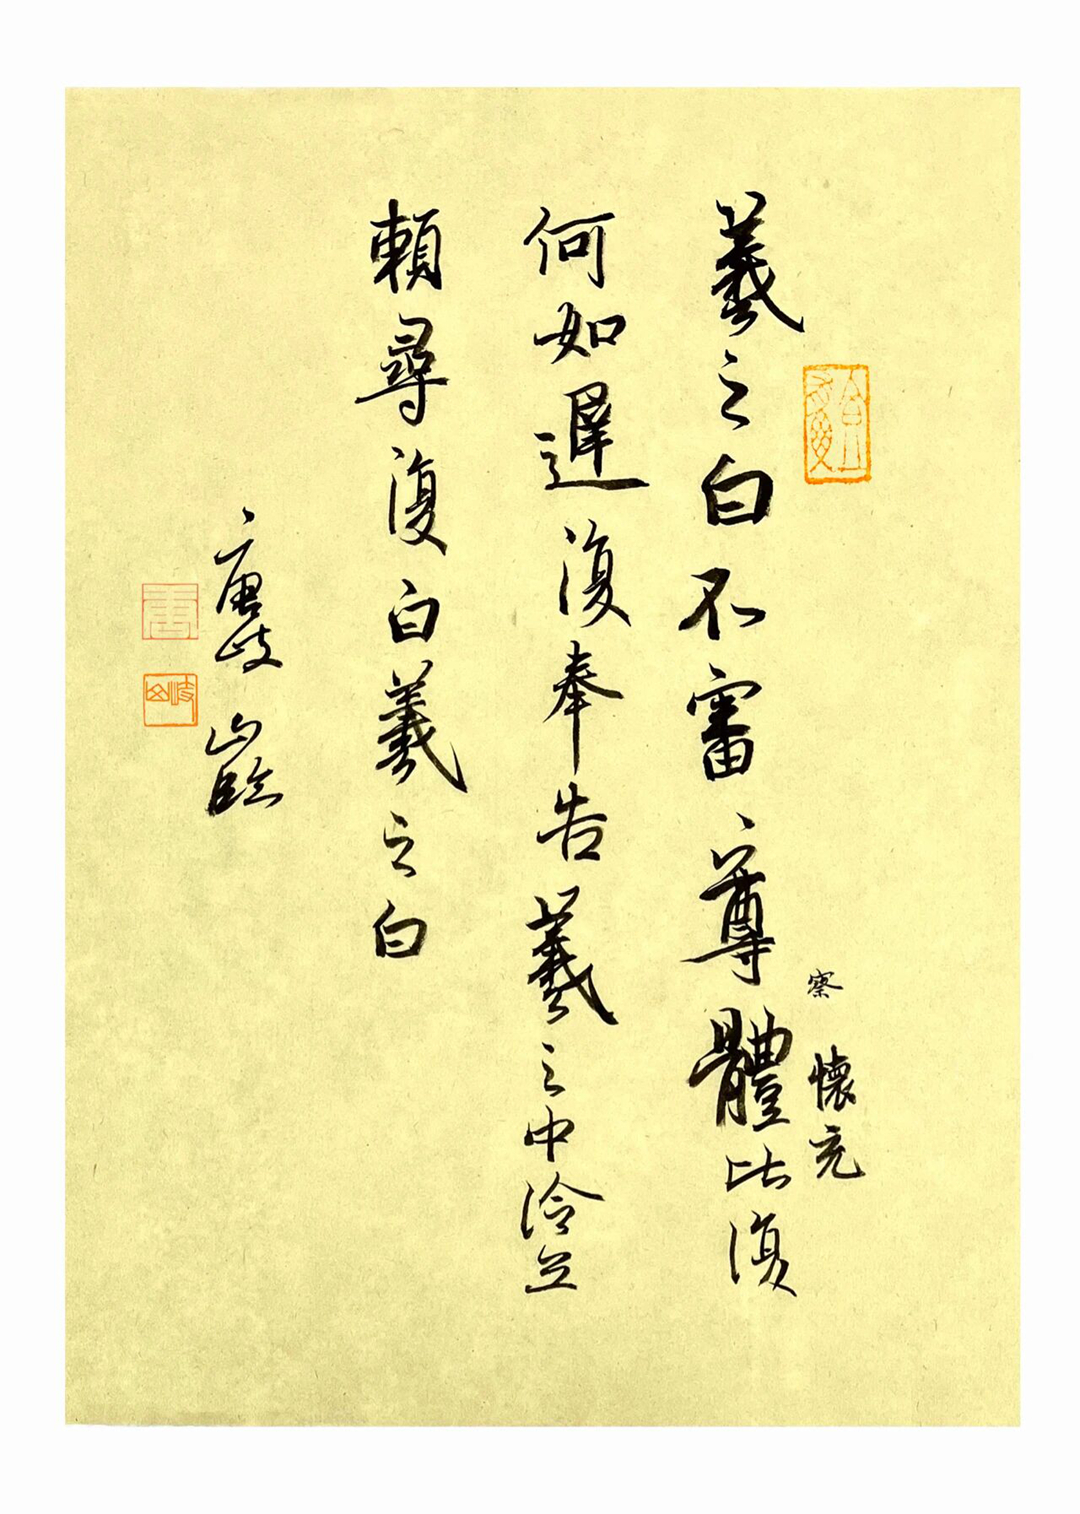 羲之白不審尊體比復
察懷充
何如遲復奉告羲之中冷無
賴尋復白羲之白
唐岐山臨
唐
岐山